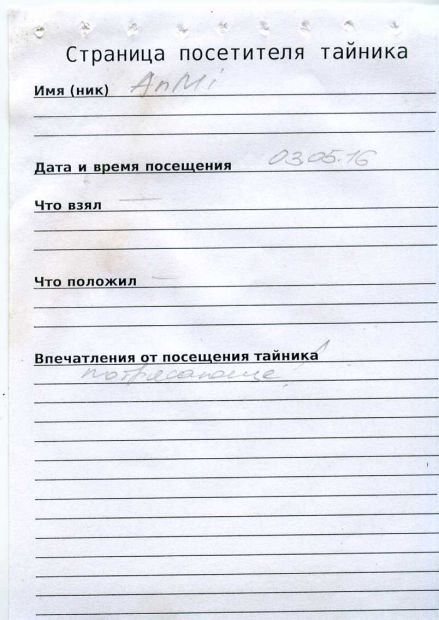 Страница посетителя тайника
Имя (ник) AnMi
Дата и время посещения 03.05.16
Что взял —
Что положил —
Впечатления от посещения тайника
потрясающие!